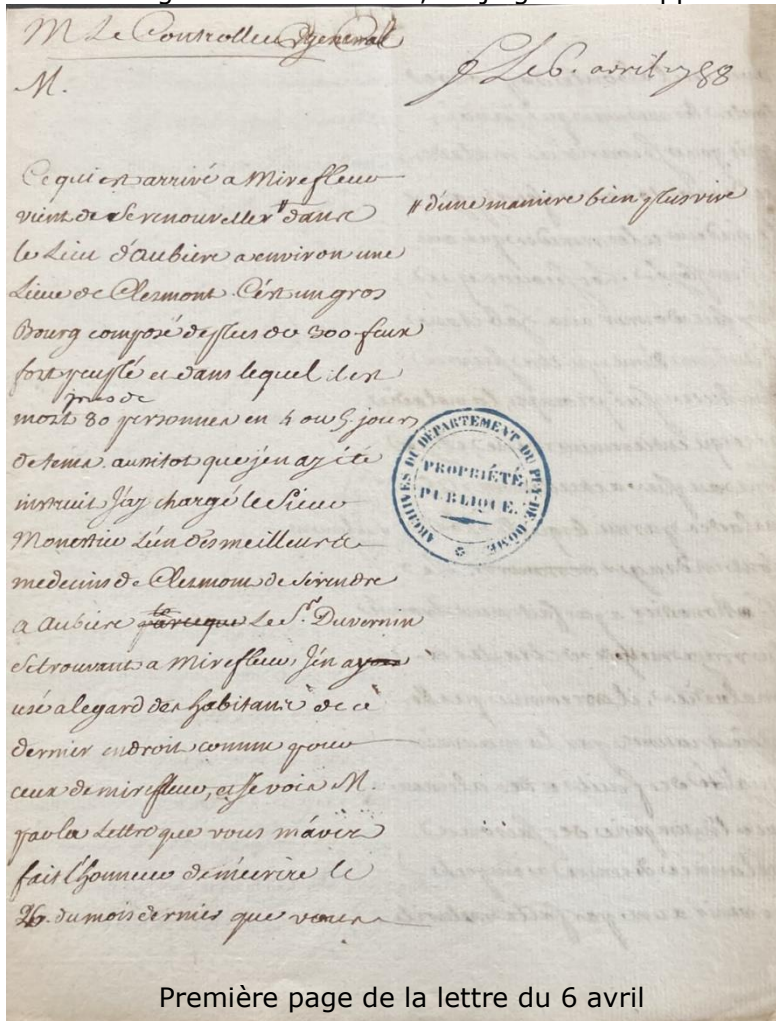 M Le Controlleur general
Le 6. avril 1788
M.
Ce qui est arrivé a Mirefleur
vient de se renouveller " dans
" d'une maniere bien plus vive
le Lieu d'Aubiere a environ une
Lieue de Clermont. C'est un gros
Bourg composé de plus de 300 feux
fort peuplé et dans lequel il est
près de
mort 80 personnes en 4 ou 5 jours
de tems. aussitot que j'en ay été
instruit J'ay chargé le Sieur
Monestier L'un des meilleurs
medecins de Clermont de se rendre
a Aubiere parceque Le Sr. Duvernin
se trouvant a Mirefleur, J'en ay
usé a legard des habitans de ce
dernier endroit comme pour
ceux de mirefleur, et Je vois M.
par la Lettre que vous m'avez
fait l'honneur de m'ecrire le
26. du mois dernier que vous
ARCHIVES DU DÉPARTEMENT DU PUY-DE-DOME
PROPRIÉTÉ
PUBLIQUE.
Première page de la lettre du 6 avril